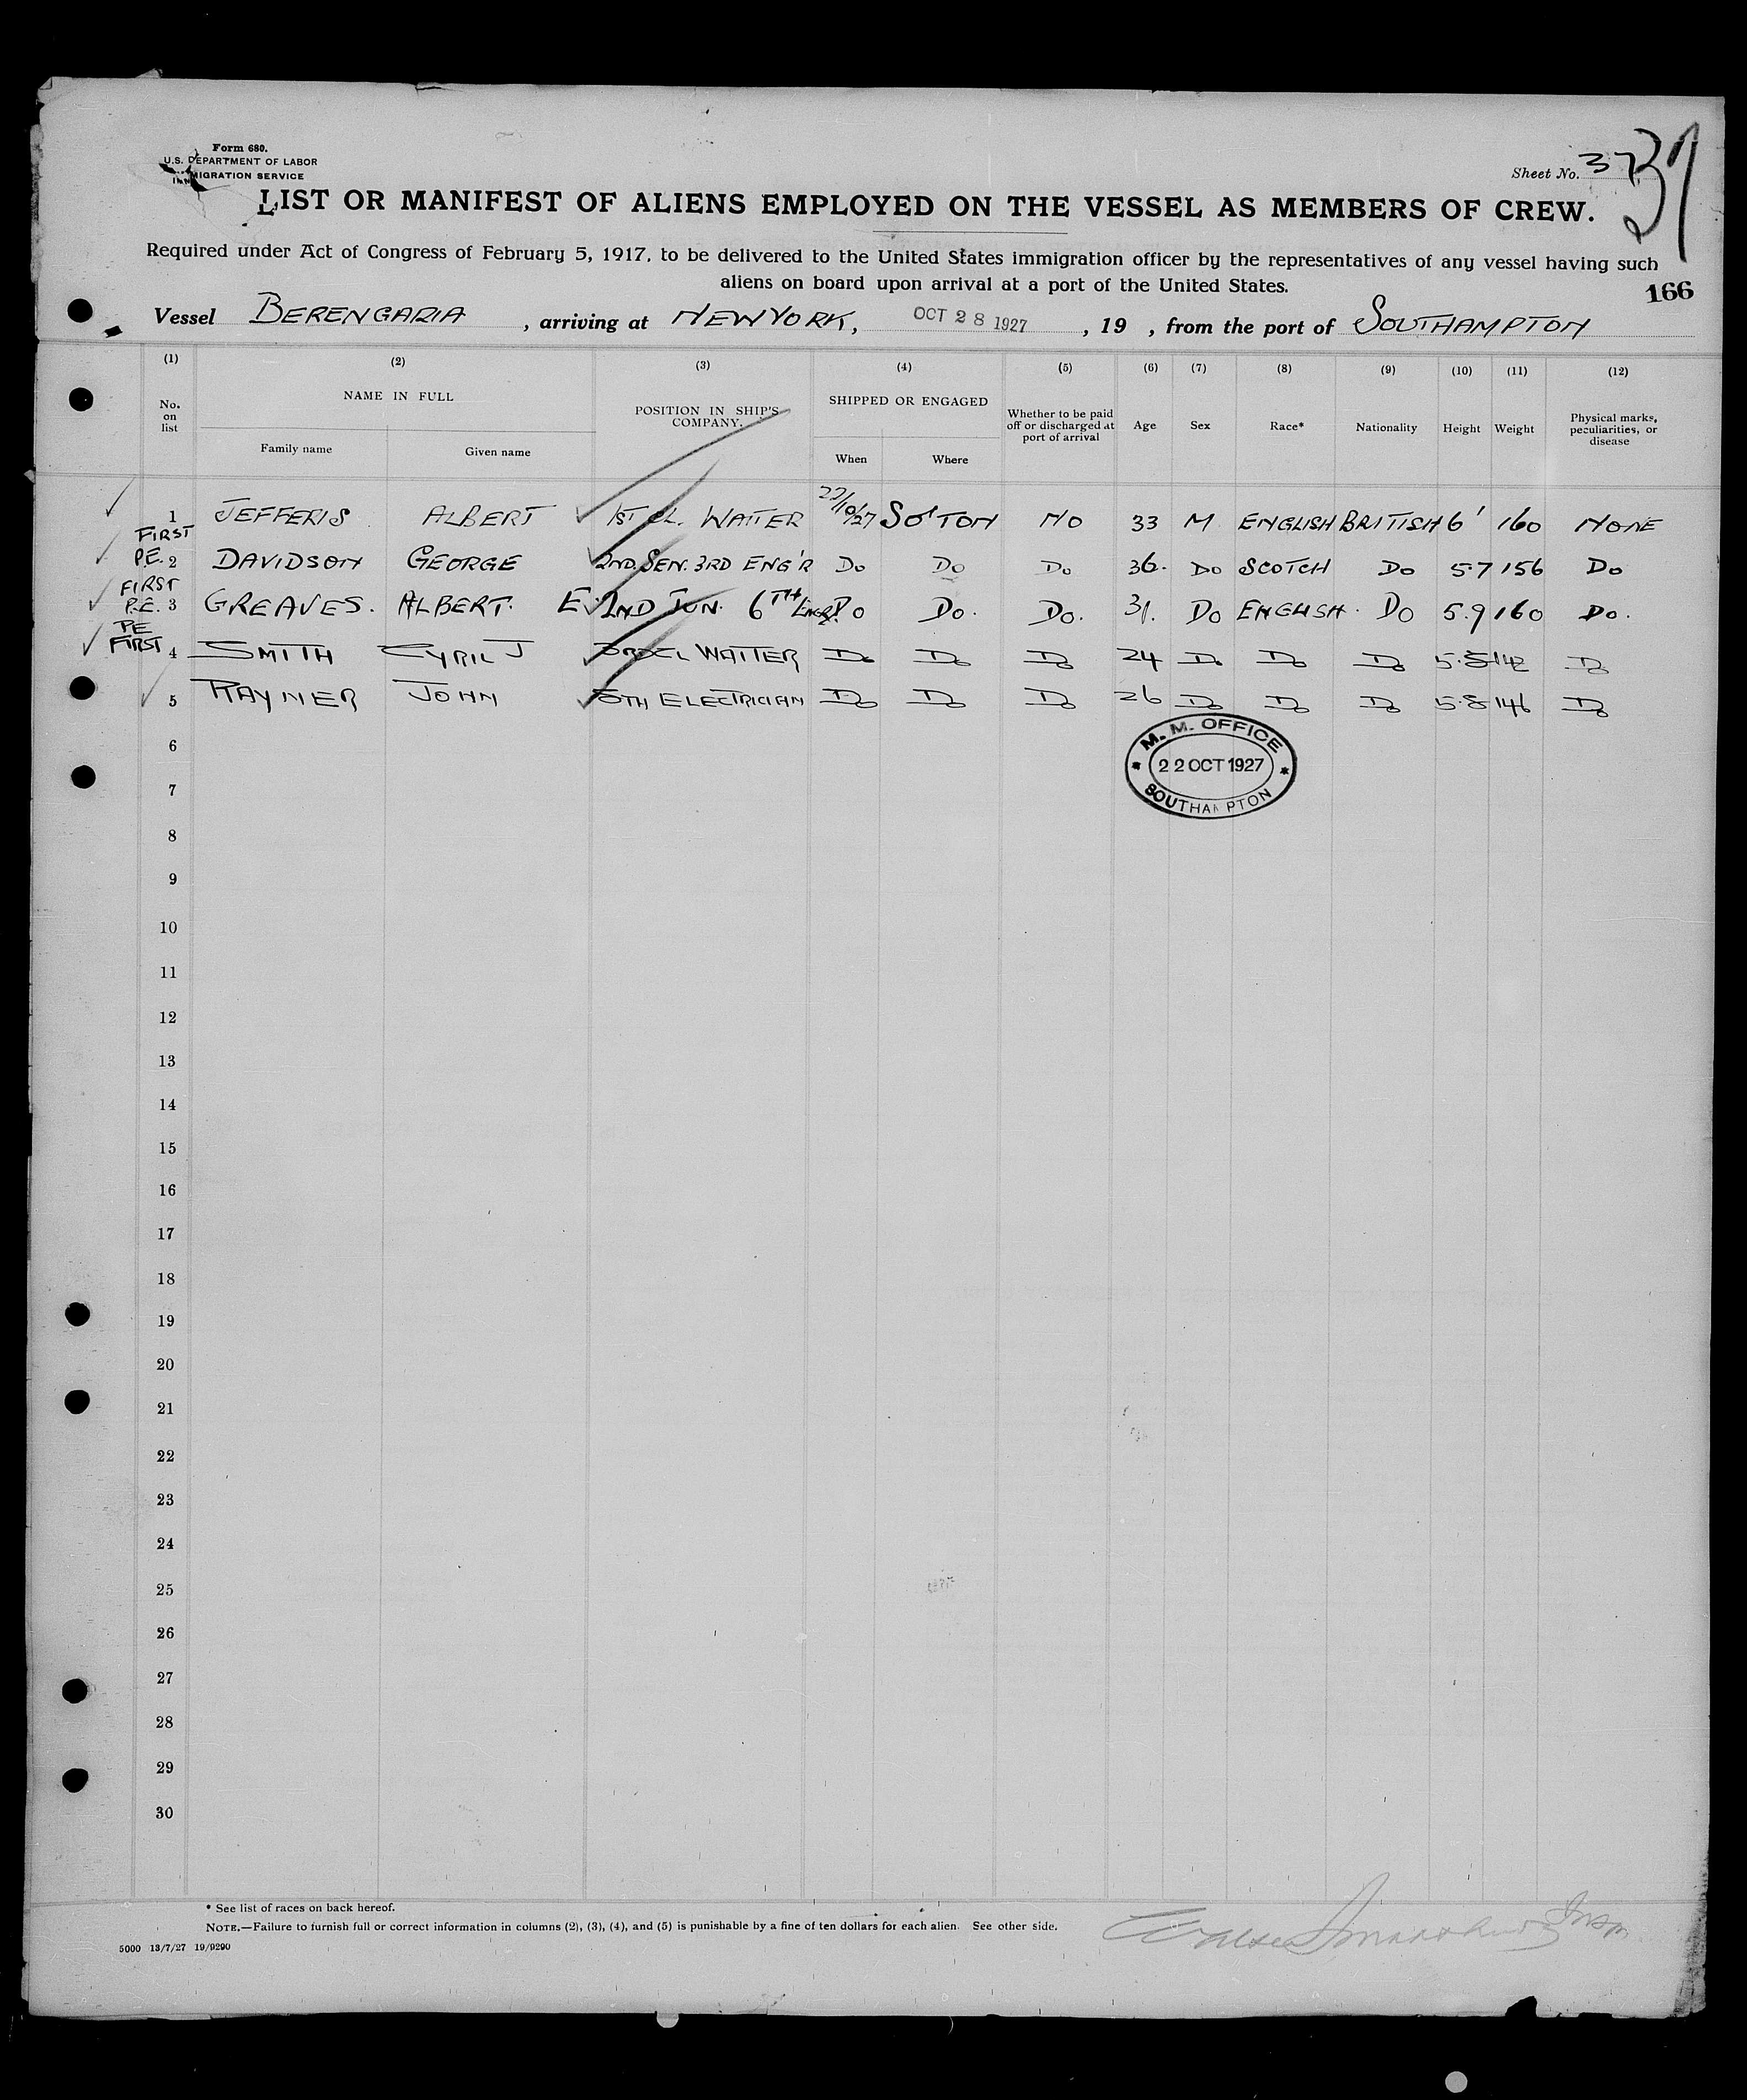 Form 680.
U.S. DEPARTMENT OF LABOR
IMMIGRATION SERVICE
Sheet No. 37
37
LIST OR MANIFEST OF ALIENS EMPLOYED ON THE VESSEL AS MEMBERS OF CREW.
Required under Act of Congress of February 5, 1917, to be delivered to the United States immigration officer by the representatives of any vessel having such
aliens on board upon arrival at a port of the United States.
166
Vessel BERENGARIA, arriving at NEW YORK, OCT 28 1927, 19 , from the port of SOUTHAMPTON
(1) (2) (3) (4) (5) (6) (7) (8) (9) (10) (11) (12)
No. on list NAME IN FULL POSITION IN SHIP'S COMPANY. SHIPPED OR ENGAGED Whether to be paid off or discharged at port of arrival Age Sex Race* Nationality Height Weight Physical marks, peculiarities, or disease
Family name Given name When Where
1 JEFFERIS ALBERT 1ST CL. WAITER 22/10/27 SO'TON NO 33 M ENGLISH BRITISH 6' 160 NONE
FIRST P.E. 2 DAVIDSON GEORGE 2ND. SEN. 3RD ENG'R DO DO DO 36. DO SCOTCH DO 5.7 156 DO
FIRST P.E. 3 GREAVES. ALBERT. E. 2ND JUN. 6TH ENGR. DO DO. DO. 31. DO ENGLISH. DO 5.9 160 DO.
PE FIRST 4 SMITH CYRIL J WAITER DO DO DO 24 DO DO DO 5.8 142 DO
5 RAYNER JOHN 5TH ELECTRICIAN DO DO DO 26 DO DO DO 5.8 146 DO
6
M. M. OFFICE
22 OCT 1927
SOUTHAMPTON
7
8
9
10
11
12
13
14
15
16
17
18
19
20
21
22
23
24
25
26
27
28
29
30
* See list of races on back hereof.
NOTE.—Failure to furnish full or correct information in columns (2), (3), (4), and (5) is punishable by a fine of ten dollars for each alien. See other side.
5000 13/7/27 19/9290